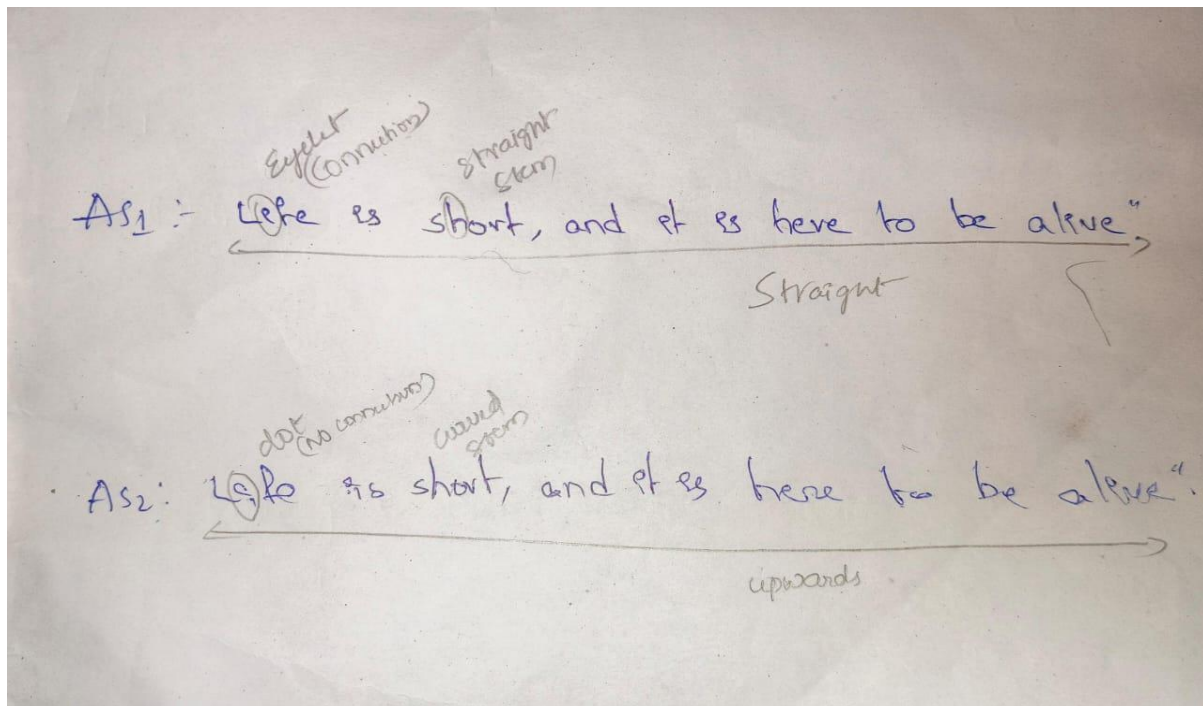 Eyelet straight
(connection) stem
AS1 :- Life is short, and it is here to be alive"
Straight
dot curved
(no connection) stem
AS2: Life is short, and it is here to be alive".
upwards